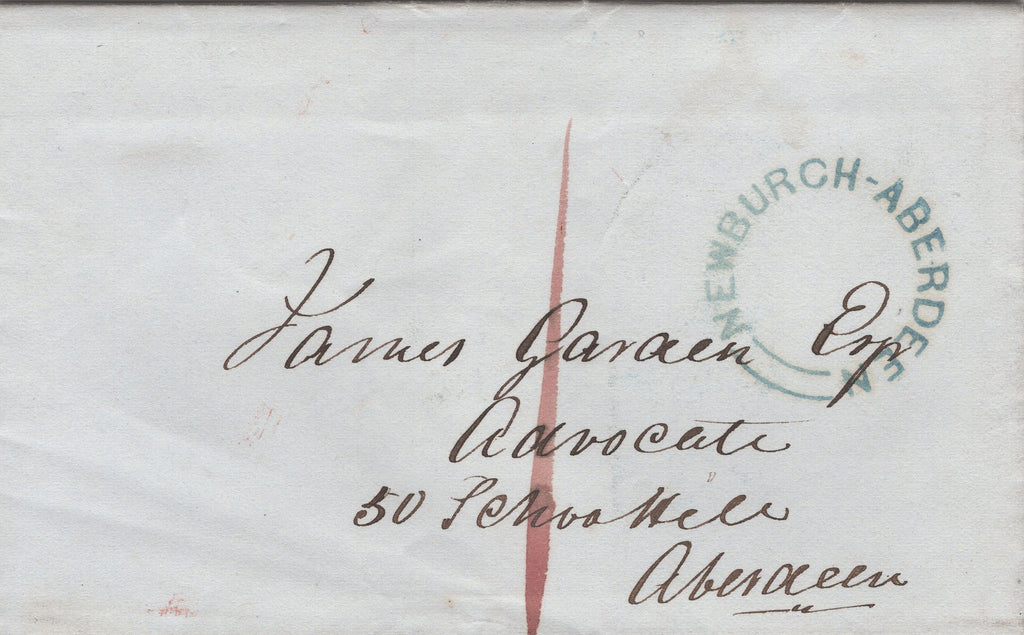 NEWBURCH-ABERDEEN
James Garden Esqr
Advocate
50 Schoolhill
Aberdeen